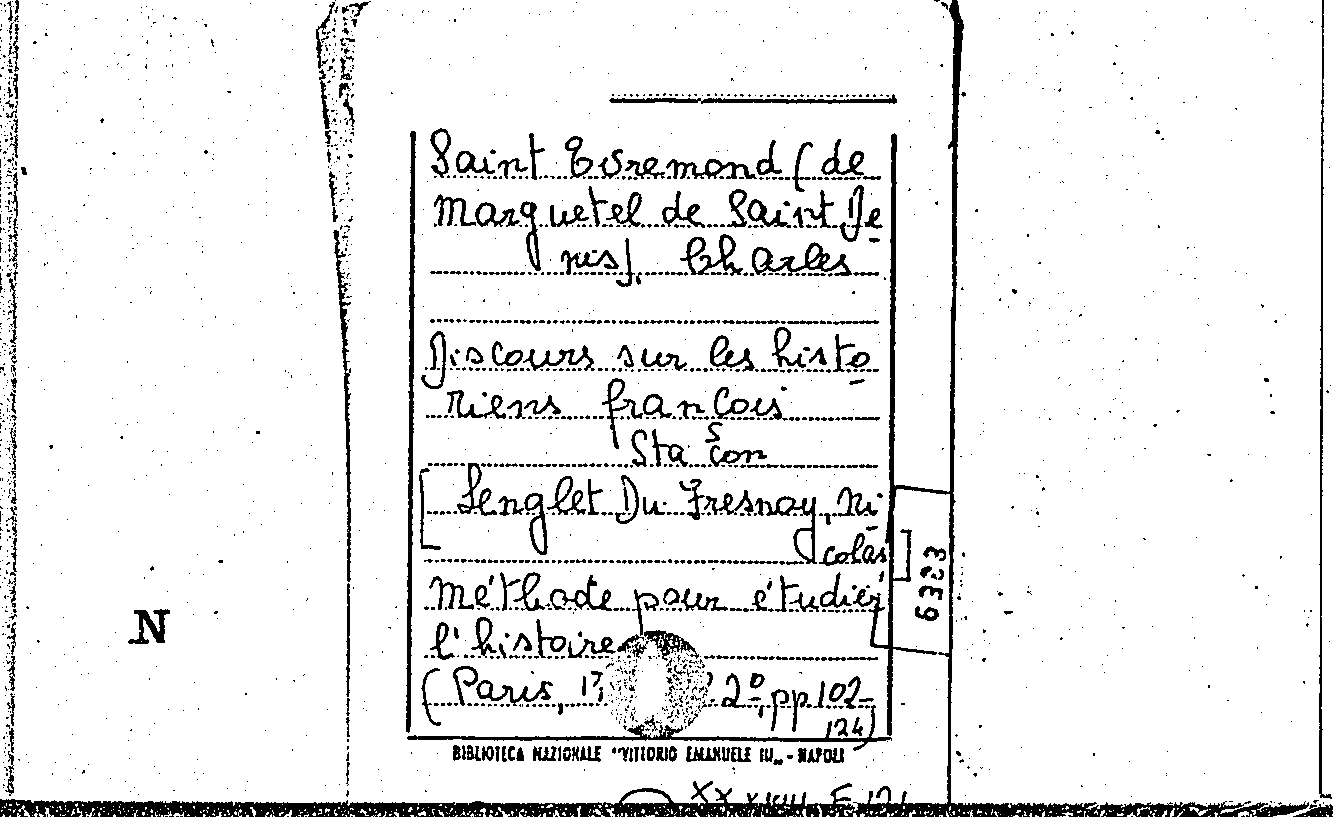 Saint Evremond (de
Marguetel de Saint De
nis). Charles
Discours sur les histo
riens francois
Sta con
s
[Lenglet Du Fresnoy, Ni
colas]
Méthode pour étudier
l'histoire
(Paris, 2º, pp 102-
124)
BIBLIOTECA NAZIONALE "VITTORIO EMANUELE III„ - NAPOLI
6323
N